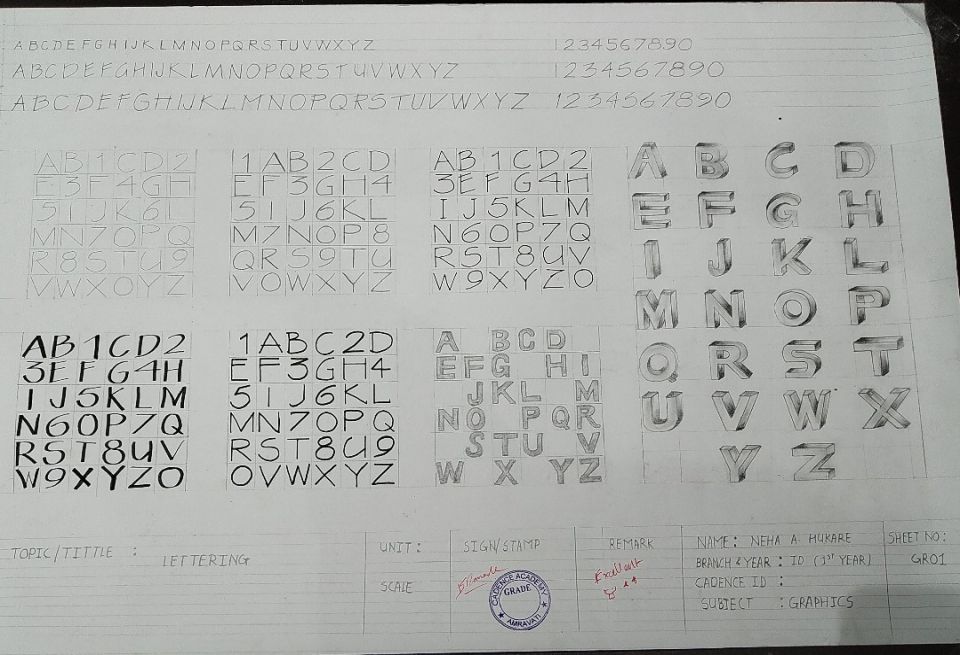 ABCDEFGHIJKLMNOPQRSTUVWXYZ 1234567890
ABCDEFGHIJKLMNOPQRSTUVWXYZ 1234567890
ABCDEFGHIJKLMNOPQRSTUVWXYZ 1234567890
AB1CD2
E3F4GH
51JK6L
MN7OPQ
R8STU9
VWX0YZ
1AB2CD
EF3GH4
51J6KL
M7NOP8
QRS9TU
V0WXYZ
AB1CD2
3EFG4H
IJ5KLM
N6OP7Q
RST8UV
W9XYZ0
A B C D
E F G H
I J K L
M N O P
Q R S T
U V W X
Y Z
AB1CD2
3EFG4H
IJ5KLM
N6OP7Q
RST8UV
W9XYZO
1ABC2D
EF3GH4
51J6KL
MN7OPQ
RST8U9
OVWXYZ
A BCD
EFG HI
JKL M
NO PQR
STU V
W X YZ
TOPIC/TITTLE :
LETTERING
UNIT:
SCALE
SIGN/STAMP
CADENCE ACADEMY
GRADE
AMRAVATI
REMARK
Excellent
NAME: NEHA A. HUKARE
BRANCH & YEAR : ID (1ST YEAR)
CADENCE ID :
SUBJECT : GRAPHICS
SHEET NO:
GR01